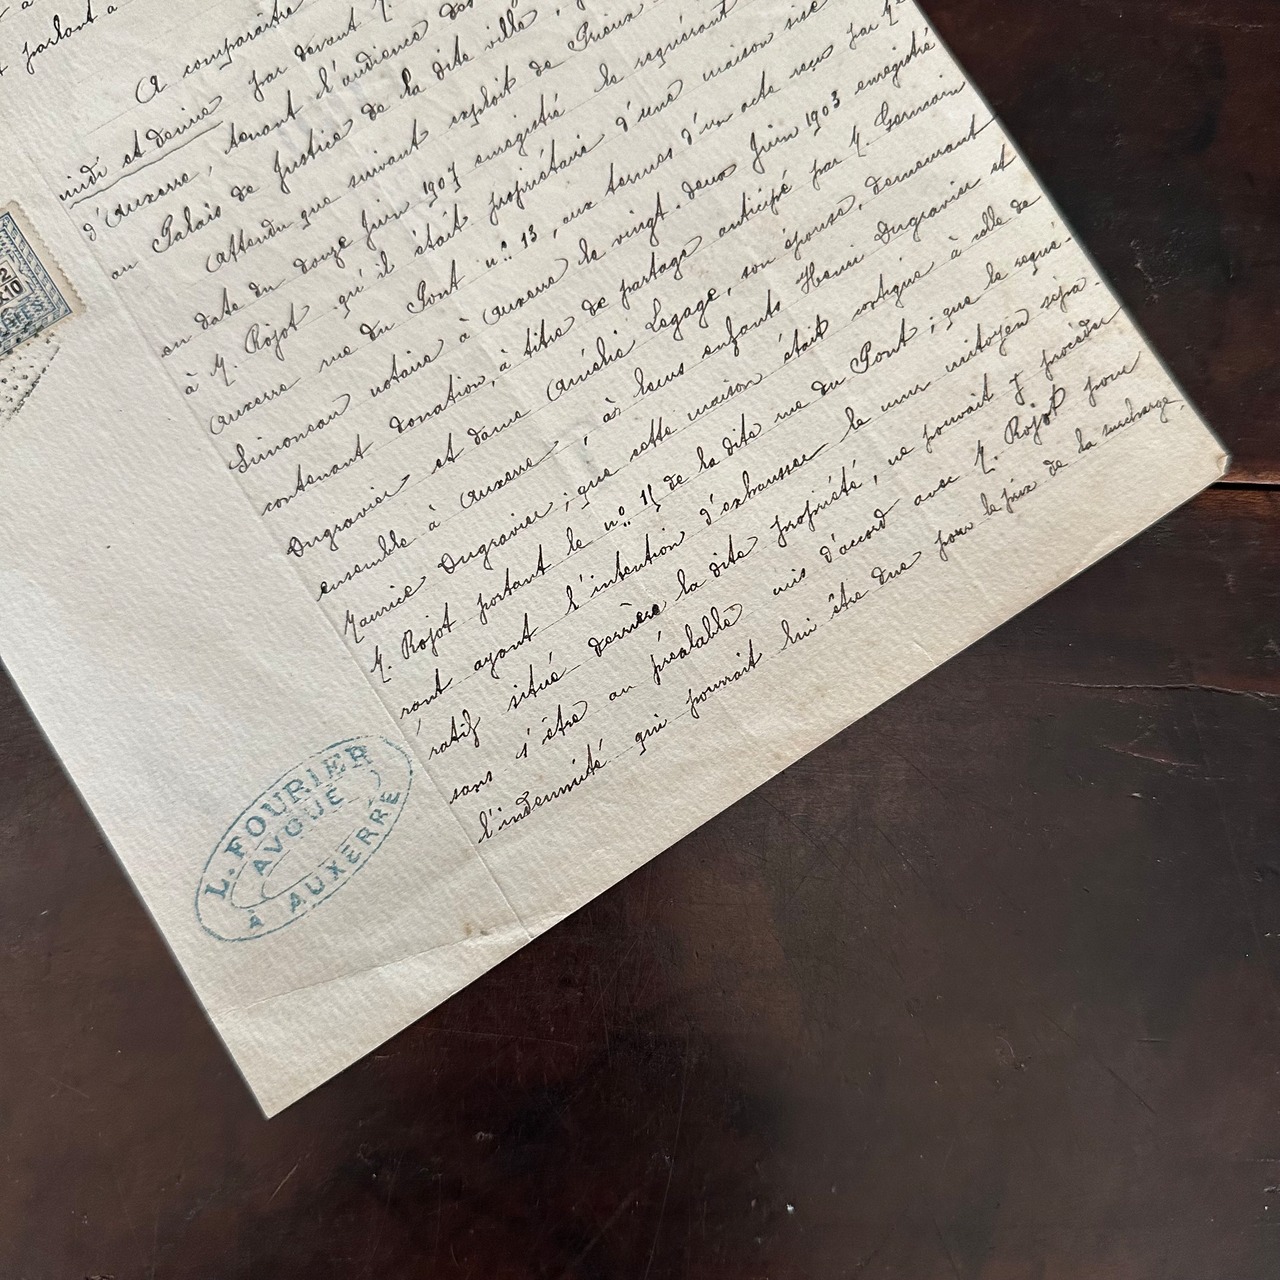 parlant à
A comparaître
midi et demie par devant M.
d'Auxerre, tenant l'audience des
au Palais de Justice de la dite ville,
Attendu que suivant exploit de Prieux
en date du douze Juin 1907 enregistré le requérant
à M. Rojot qu'il était propriétaire d'une maison sise
Auxerre rue du Pont n° 13, aux termes d'un acte reçu par Me
Simoneau notaire à Auxerre le vingt-deux Juin 1903 enregistré
contenant donation, à titre de partage anticipé par M. Germain
Dugravier et dame Amélie Legage, son épouse, demeurant
ensemble à Auxerre, à leurs enfants Henri Dugravier et
Maurice Dugravier; que cette maison était contigüe à celle de
M. Rojot portant le n° 11 de la dite rue du Pont; que le requé-
rant ayant l'intention d'exhausser le mur mitoyen sépa-
ratif situé derrière la dite propriété, ne pouvait y procéder
sans s'être au préalable mis d'accord avec M. Rojot pour
l'indemnité qui pourrait lui être due pour le prix de la surcharge.
L. FOURIER
AVOUÉ
À AUXERRE